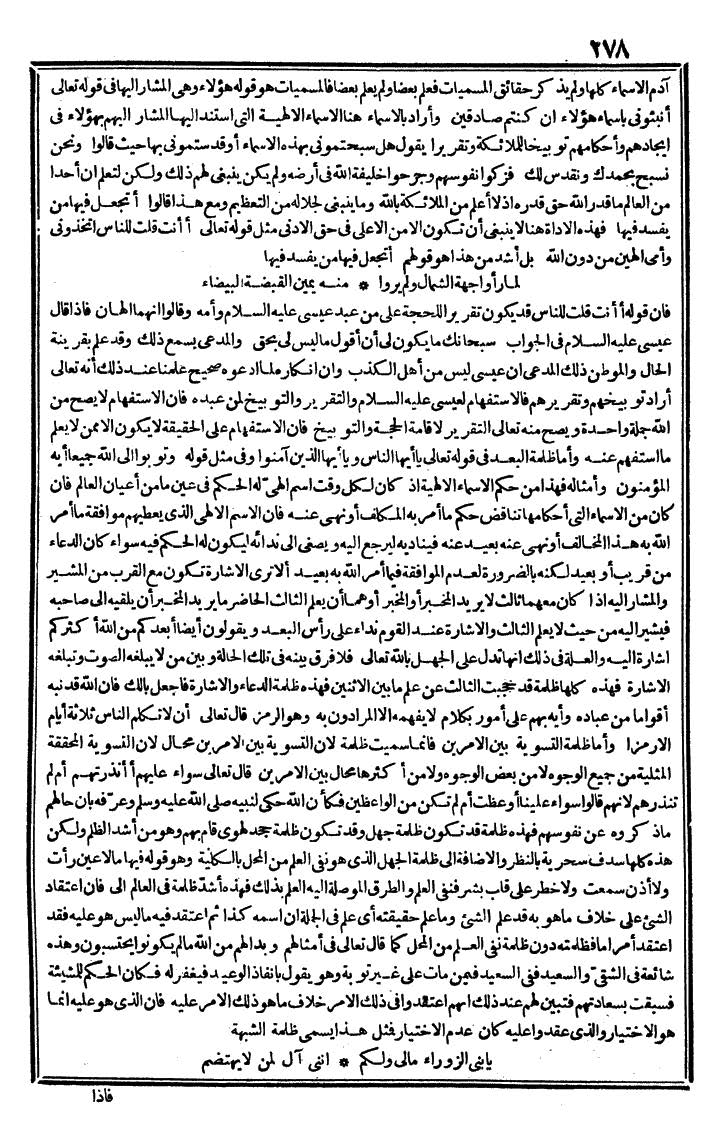 ٢٧٨
آدم الاسماء كلها ولم يذكر حقائق المسميات فعلم بعضا ولم يعلم بعضا فالمسميات هو قوله هؤلاء وهى المشار اليها فى قوله تعالى
أنبئونى باسماء هؤلاء ان كنتم صادقين وأراد بالاسماء هنا الاسماء الالهية التى استند اليها المشار اليهم بهؤلاء فى
ايجادهم وأحكامهم توبيخا للملائكة وتقريرا يقول هل سبحتمونى بهذه الاسماء أو قدستمونى بها حيث قالوا ونحن
نسبح بحمدك ونقدس لك فزكوا نفوسهم وجرحوا خليفة الله فى أرضه ولم يكن ينبغى لهم ذلك ولكن لتعلم ان أحدا
من العالم ما قدر الله حق قدره اذ لا أعلم من الملائكة بالله وما ينبغى لجلاله من التعظيم ومع هذا قالوا أتجعل فيها من
يفسد فيها فهذه الاداة هنا لا ينبغى أن تكون الامن الاعلى فى حق الادنى مثل قوله تعالى أأنت قلت للناس اتخذونى
وأمى الهين من دون الله بل أشد من هذا هو قولهم أتجعل فيها من يفسد فيها
لما رأوا جهة الشمال ولم يروا * منه يمين القبضة البيضاء
فان قوله أأنت قلت للناس قد يكون تقريرا للحجة على من عبد عيسى عليه السلام وأمه وقالوا انهما الهان فاذا قال
عيسى عليه السلام فى الجواب سبحانك ما يكون لى أن أقول ما ليس لى بحق والمدعى يسمع ذلك وقد علم بقرينة
الحال والموطن ذلك المدعى ان عيسى ليس من أهل الكذب وان انكاره لما ادعوه صحيح علمنا عند ذلك أنه تعالى
أراد توبيخهم وتقريرهم فالاستفهام لعيسى عليه السلام والتقرير والتوبيخ لمن عبده فان الاستفهام لا يصح من
الله جملة واحدة ويصح منه تعالى التقرير لاقامة الحجة والتوبيخ فان الاستفهام على الحقيقة لا يكون الا ممن لا يعلم
ما استفهم عنه وأما ظلمة البعد فى قوله تعالى يا أيها الناس ويا أيها الذين آمنوا وفى مثل قوله وتوبوا الى الله جميعا أيه
المؤمنون وأمثاله فهذا من حكم الاسماء الالهية اذ كان لكل وقت اسم الهىّ له الحكم فى عين ما من أعيان العالم فان
كان من الاسماء التى أحكامها تناقض حكم ما أمر به المكلف أو نهى عنه فان الاسم الالهى الذى يعطيهم موافقة ما أمر
الله به هذا المخالف أو نهى عنه بعيد عنه فيناديه ليرجع اليه ويصغى الى ندائه ليكون له الحكم فيه سواء كان الدعاء
من قريب أو بعيد لكنه بالضرورة لعدم الموافقة فيما أمر الله به بعيد ألا ترى الاشارة تكون مع القرب من المشير
والمشار اليه اذا كان معهما ثالث لا يريد المخبر أو المخبر أوهما أن يعلم الثالث الحاضر ما يريد المخبر أن يلقيه الى صاحبه
فيشير اليه من حيث لا يعلم الثالث والاشارة عند القوم نداء على رأس البعد ويقولون أيضا أبعدكم من الله أكثركم
اشارة اليه والعلة فى ذلك انها تدل على الجهل بالله تعالى فلا فرق بينه فى تلك الحالة وبين من لا يبلغه الصوت وتبلغه
الاشارة فهذه كلها ظلمة قد حجبت الثالث عن علم ما بين الاثنين فهذه ظلمة الدعاء والاشارة فاجعل بالك فان الله قد نبه
أقواما من عباده وأيه بهم على أمور بكلام لا يفهمه الا المرادون به وهو الرمز قال تعالى أن لا تكلم الناس ثلاثة أيام
الارمزا وأما ظلمة التسوية بين الامرين فانما سميت ظلمة لان التسوية بين الامرين محال لان التسوية المحققة
المثلية من جميع الوجوه لا من بعض الوجوه ولا من أكثرها محال بين الامرين قال تعالى سواء عليهم أأنذرتهم أم لم
تنذرهم لانهم قالوا سواء علينا أوعظت أم لم تكن من الواعظين فكأن الله حكى لنبيه صلى الله عليه وسلم وعرّفه بان حالهم
ما ذكروه عن نفوسهم فهذه ظلمة قد تكون ظلمة جهل وقد تكون ظلمة جحد لهوى قام بهم وهو من أشد الظلم ولكن
هذه كلها سدف سحرية بالنظر والاضافة الى ظلمة الجهل الذى هو نفى العلم من المحل بالكلية وهو قوله فيها مالا عين رأت
ولا أذن سمعت ولا خطر على قلب بشر فنفى العلم والطرق الموصلة اليه العلم بذلك فهذه أشدّ ظلمة فى العالم الى فان اعتقاد
الشئ على خلاف ما هو به قد علم الشئ وما علم حقيقته أى علم فى الجلة ان اسمه كذا ثم اعتقد فيه ما ليس هو عليه فقد
اعتقد أمرا ما فظلمته دون ظلمة نفى العلم من المحل كما قال تعالى فى أمثالهم وبدا لهم من الله ما لم يكونوا يحتسبون وهذه
شائعة فى الشقىّ والسعيد ففى السعيد فمن مات على غير توبة وهو يقول بانفاذ الوعيد فيغفر له فكان الحكم للمشيئة
فسبقت بسعادتهم فتبين لهم عند ذلك انهم اعتقدوا فى ذلك الامر خلاف ما هو ذلك الامر عليه فان الذى هو عليه انما
هو الاختيار والذى عقدوا عليه كان عدم الاختيار فمثل هذا يسمى ظلمة الشبهة
يا بنى الزوراء مالى ولكم * اننى آل لمن لا يهتضم
فاذا